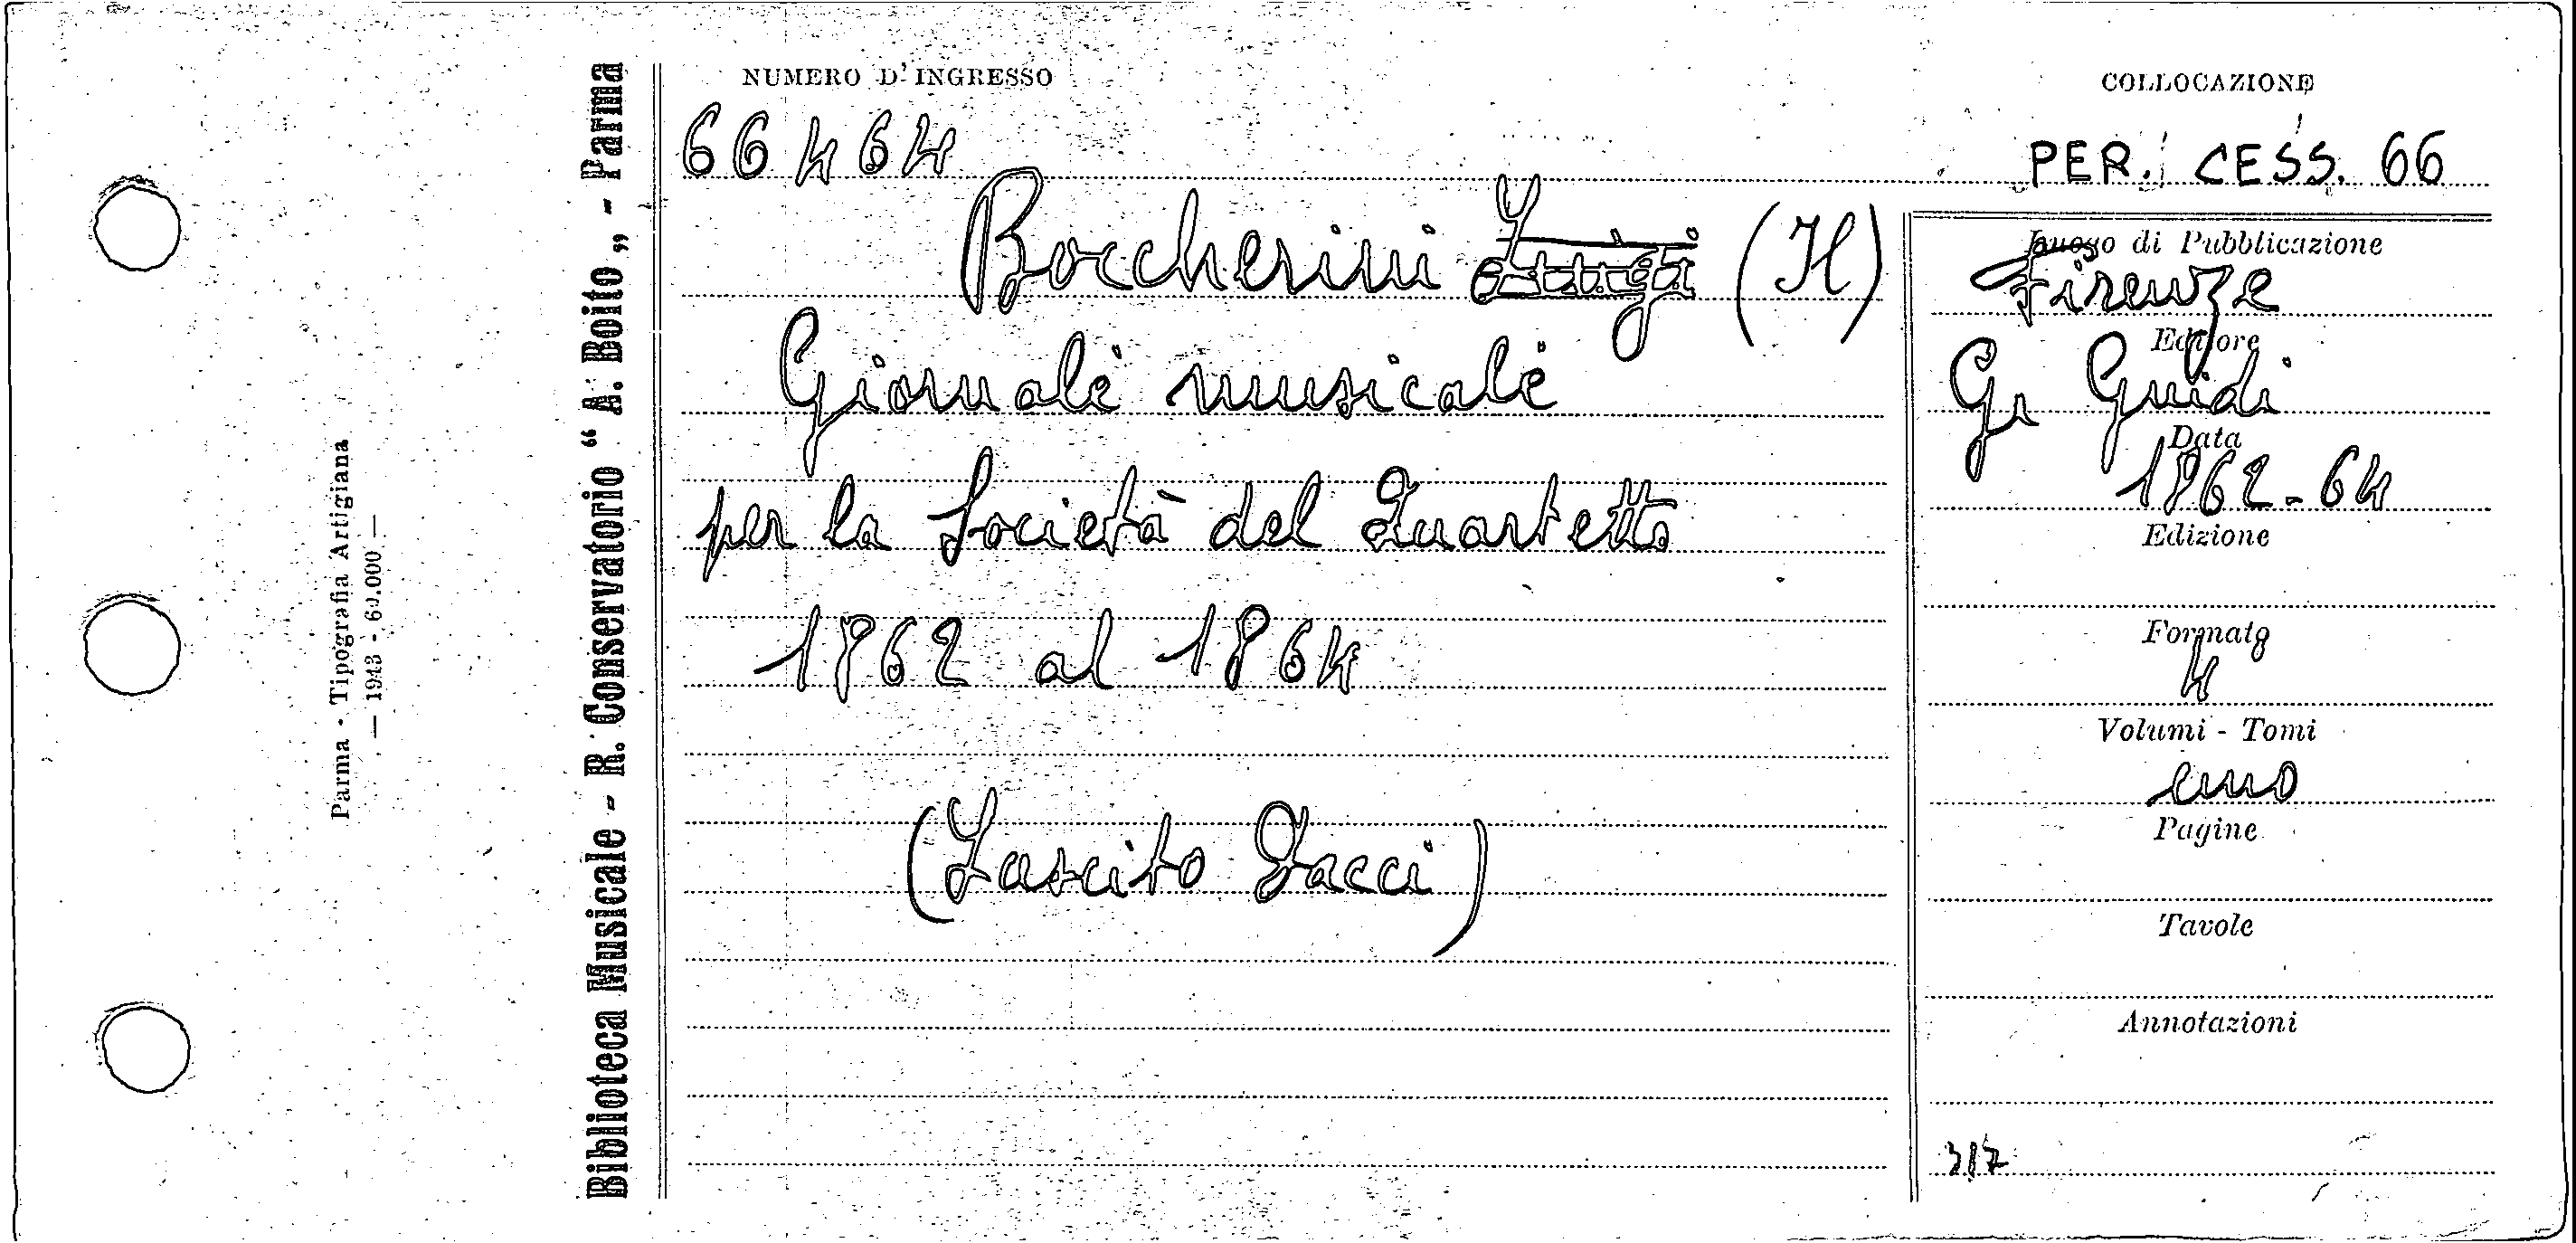 NUMERO D'INGRESSO
66464
COLLOCAZIONE
PER. CESS. 66
Boccherini Luigi (Il)
Giornale musicale
per la Società del Quartetto
1862 al 1864
(Lascito Tacci)
Luogo di Pubblicazione
Firenze
Editore
G. Guidi
Data
1862-64
Edizione
Formato
4
Volumi - Tomi
uno
Pagine
Tavole
Annotazioni
317
Biblioteca Musicale - R. Conservatorio “ A. Boito „ - Parma
Parma - Tipografia Artigiana
— 1943 - 60.000 —